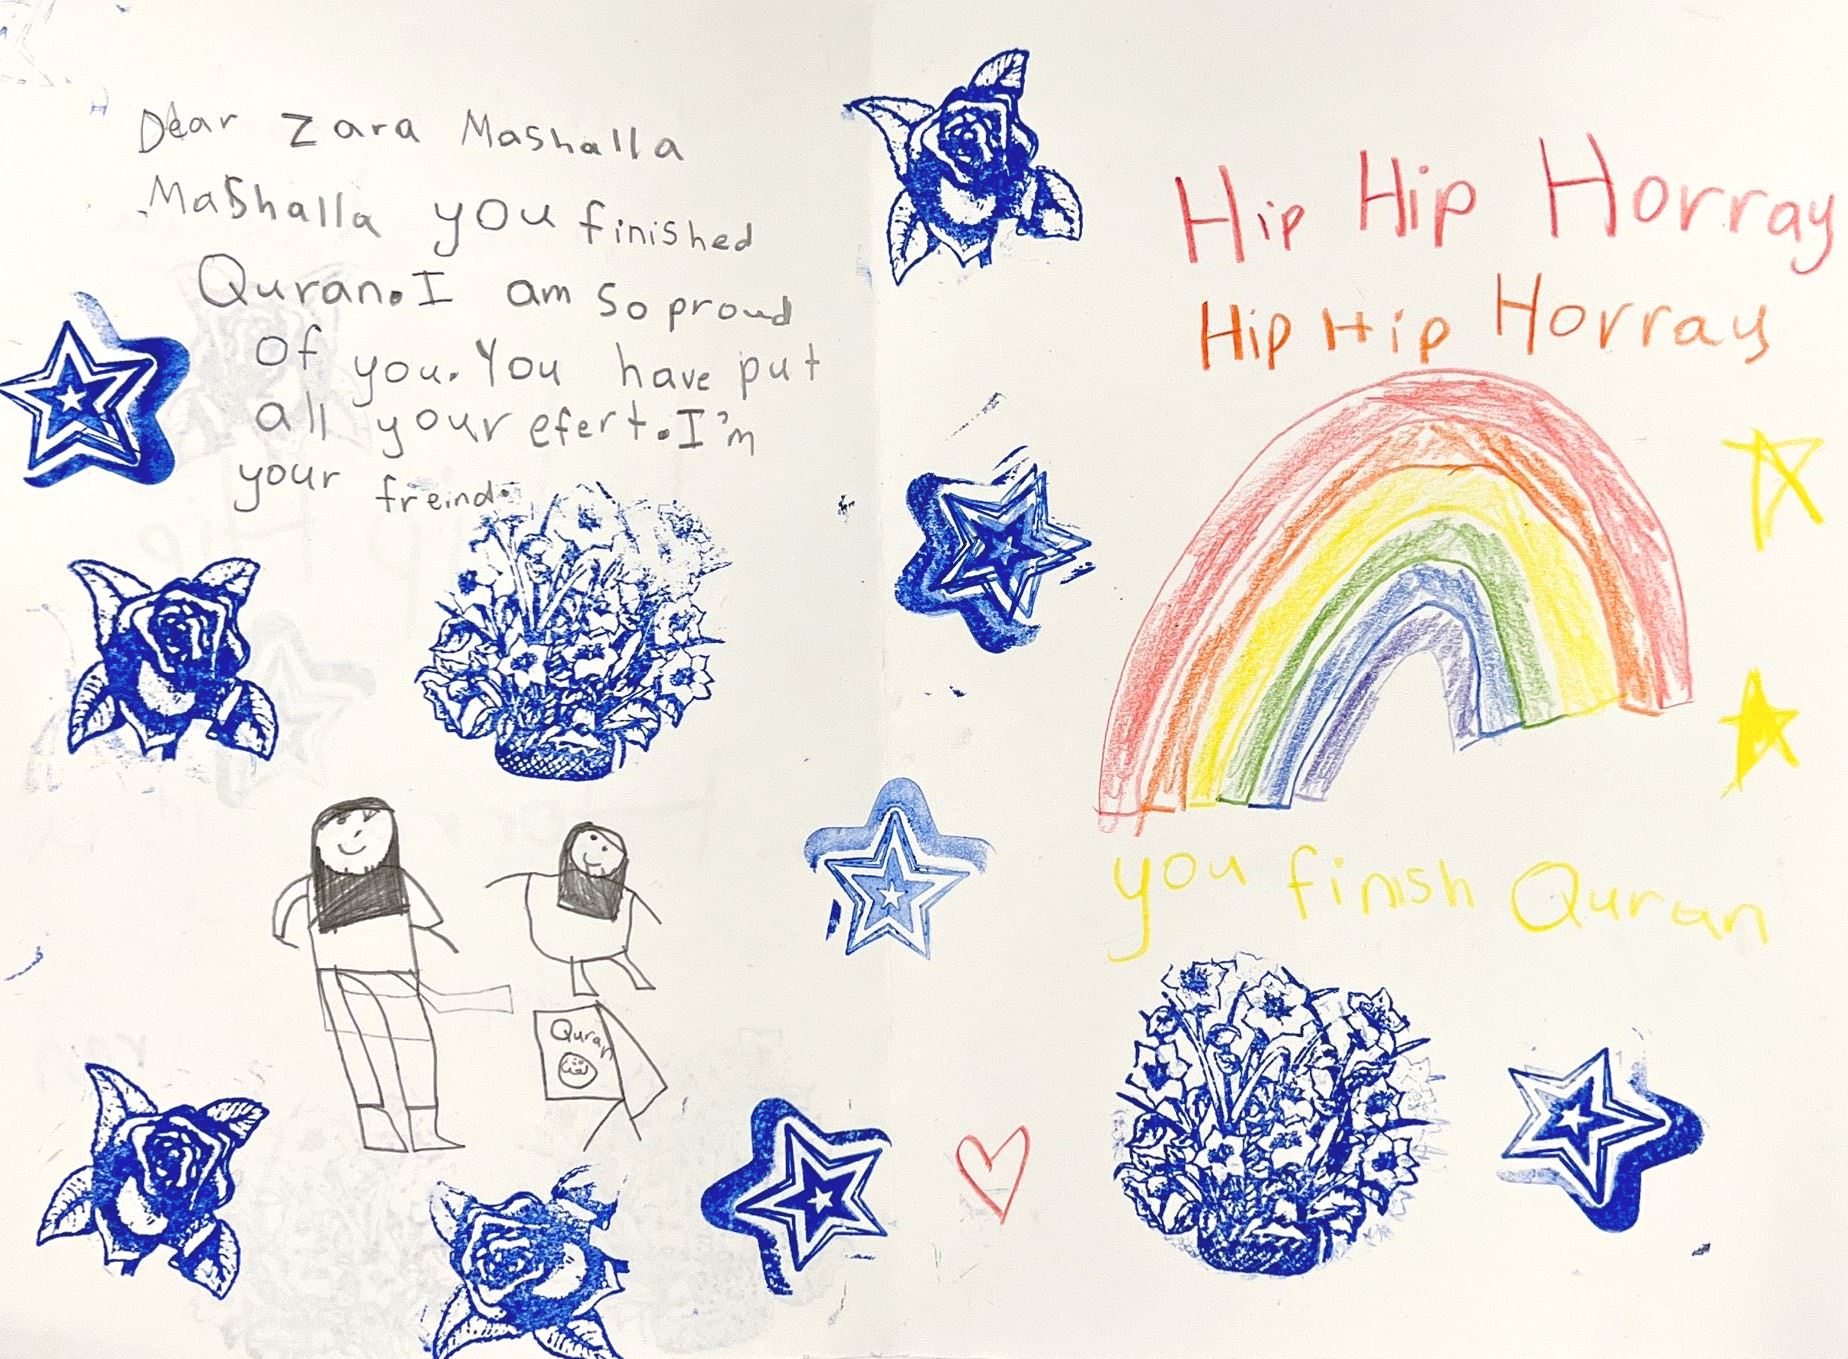 Dear Zara Mashalla
Mashalla you finished
Quran. I am so proud
of you. You have put
all your efert. I'm
your freind.
Quran
Hip Hip Horray
Hip Hip Horray
you finish Quran